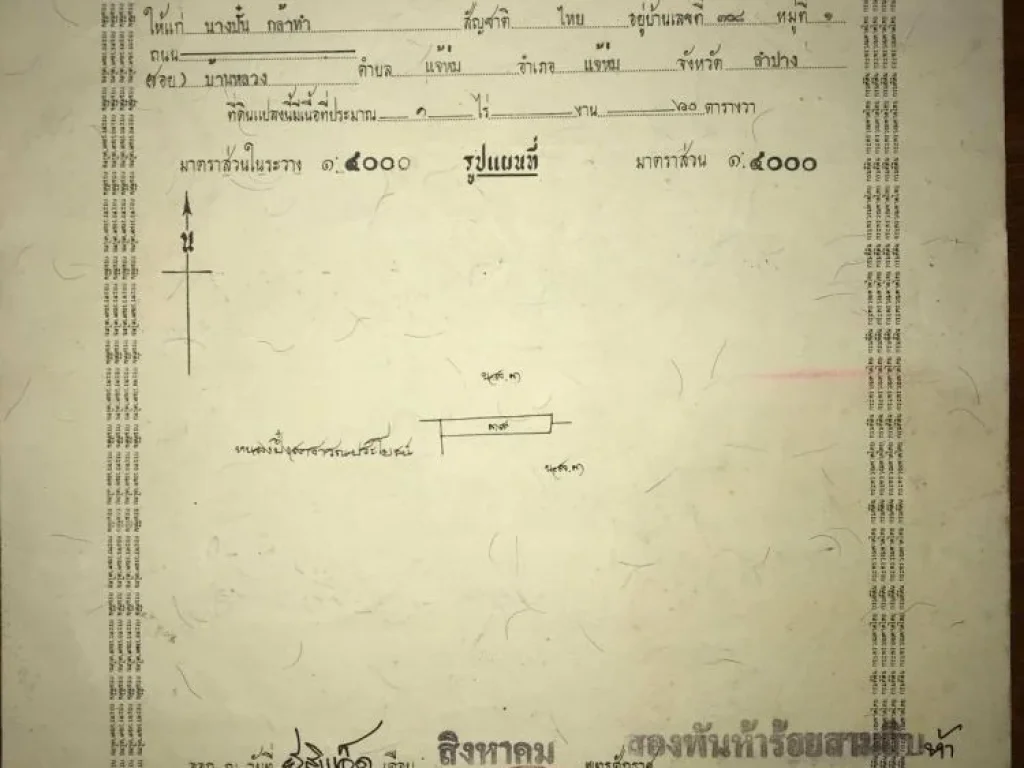 ให้แก่ นางปั๋น กล้าทำ สัญชาติ ไทย อยู่บ้านเลขที่ ๓๘๘ หมู่ที่ ๑
ถนน
(ซอย) บ้านหลวง ตำบล แจ้ห่ม อำเภอ แจ้ห่ม จังหวัด ลำปาง
ที่ดินแปลงนี้มีเนื้อที่ประมาณ ๑ ไร่ งาน ๖๐ ตารางวา
มาตราส่วนในระวาง ๑:๕๐๐๐ รูปแผนที่ มาตราส่วน ๑:๕๐๐๐
น
น.ส.๓
๓๗
สาธารณประโยชน์
น.ส.๓
ออก ณ วันที่ ยี่สิบเอ็ด เดือน สิงหาคม พุทธศักราช สองพันห้าร้อยสามสิบห้า